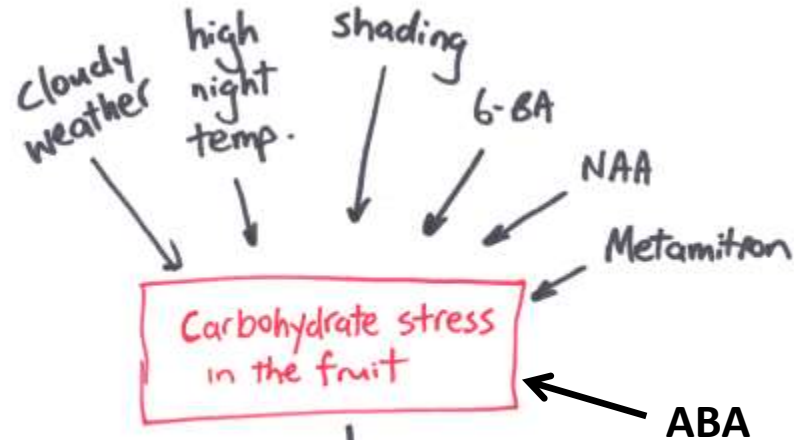 cloudy
weather
high
night
temp.
shading
6-BA
NAA
Metamitron
Carbohydrate stress
in the fruit
ABA